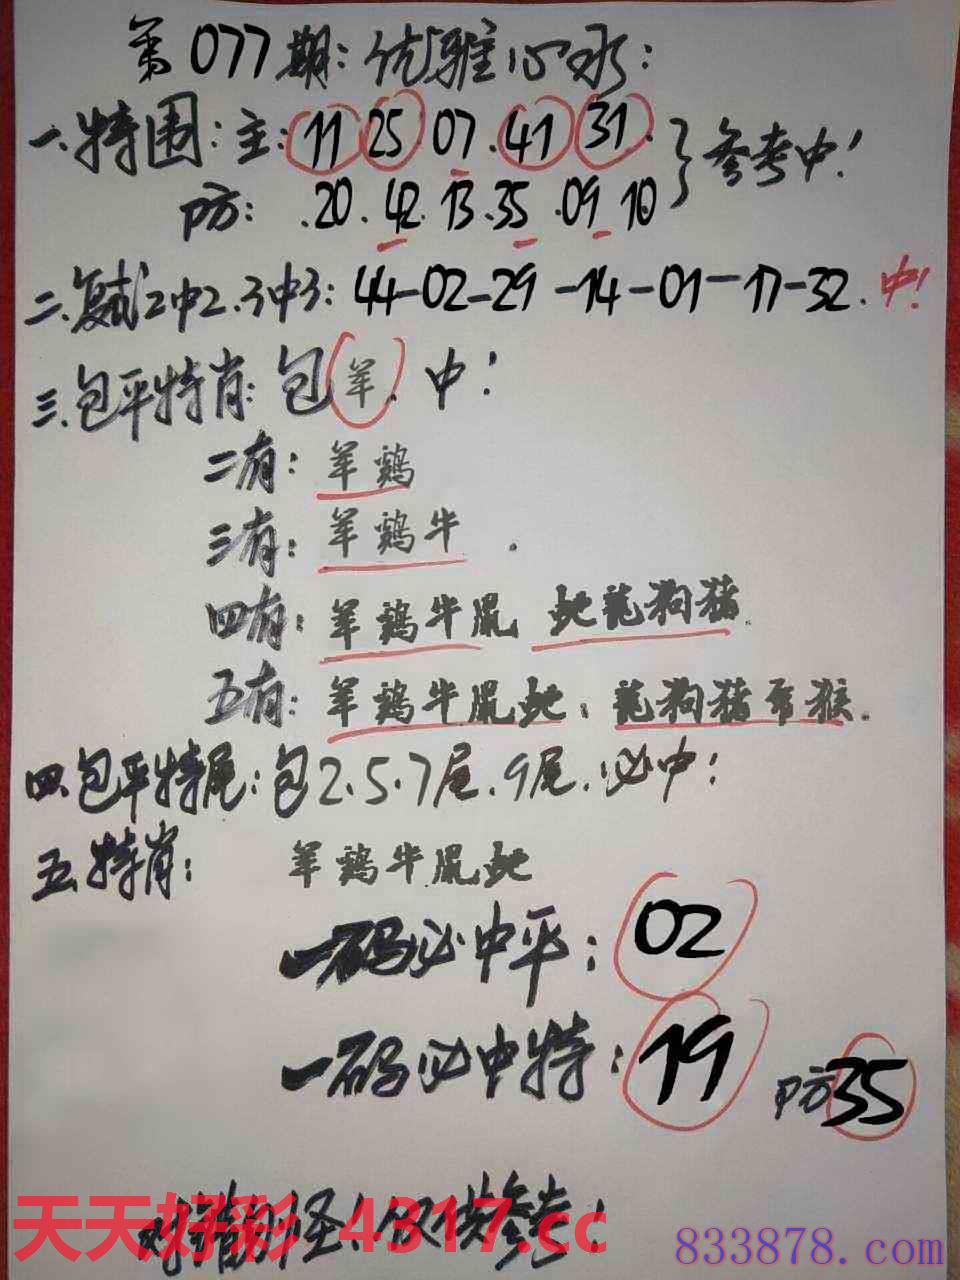 第077期:优雅心水:
一.特围:主:11 25.07.41 31.
防:.20.42.13.35.09 10
参考中!
二.复试2中2.3中3:44-02-29-14-01-17-32.中!
三.包平特肖:包羊.中!
二有:羊鸡
三有:羊鸡牛.
四有:羊鸡牛鼠 蛇龍狗猪.
五有:羊鸡牛鼠蛇:龍狗猪 猴.
四.包平特尾:包2.5.7尾.9尾.必中!
五.特肖: 羊鸡牛.鼠蛇
一码必中平:02
一码必中特:19 防35
对错勿怪!仅供参考!
天天好彩 4317.cc
833878.com